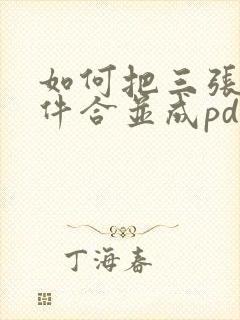 如何把三張
件合並成pd
丁海春